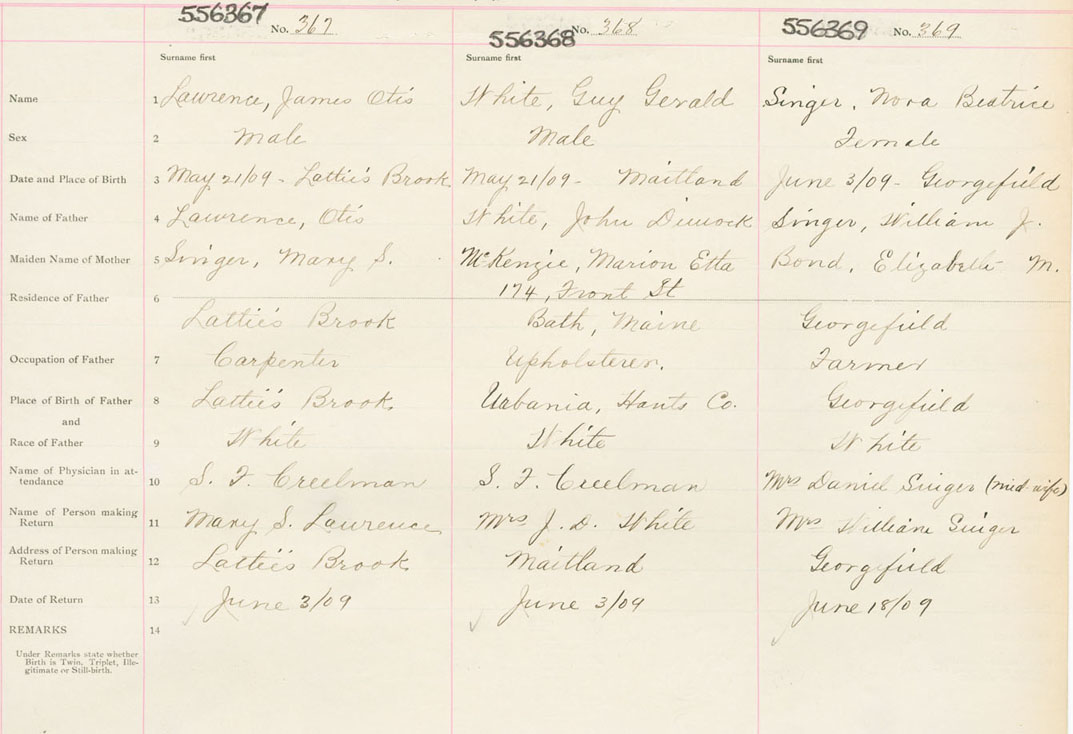 556367 No. 367 556368 No. 368 556369 No. 369
Surname first Surname first Surname first
Name 1 Lawrence, James Otis White, Guy Gerald Singer, Nora Beatrice
Sex 2 Male Male Female
Date and Place of Birth 3 May 21/09 - Lattie's Brook May 21/09 - Maitland June 3/09 - Georgefield
Name of Father 4 Lawrence, Otis White, John Dimock Singer, William J.
Maiden Name of Mother 5 Singer, Mary S. McKenzie, Marion Etta Bond, Elizabeth M.
Residence of Father 6 174, Front St
Lattie's Brook Bath, Maine Georgefield
Occupation of Father 7 Carpenter Upholsterer. Farmer
Place of Birth of Father 8 Lattie's Brook Urbania, Hants Co. Georgefield
and
Race of Father 9 White White White
Name of Physician in at-
tendance 10 S. F. Creelman S. F. Creelman Mrs Daniel Singer (mid-wife)
Name of Person making
Return 11 Mary S. Lawrence Mrs J. D. White Mrs William Singer
Address of Person making
Return 12 Lattie's Brook Maitland Georgefield
Date of Return 13 June 3/09 June 3/09 June 18/09
REMARKS 14
Under Remarks state whether
Birth is Twin, Triplet, Ille-
gitimate or Still-birth.